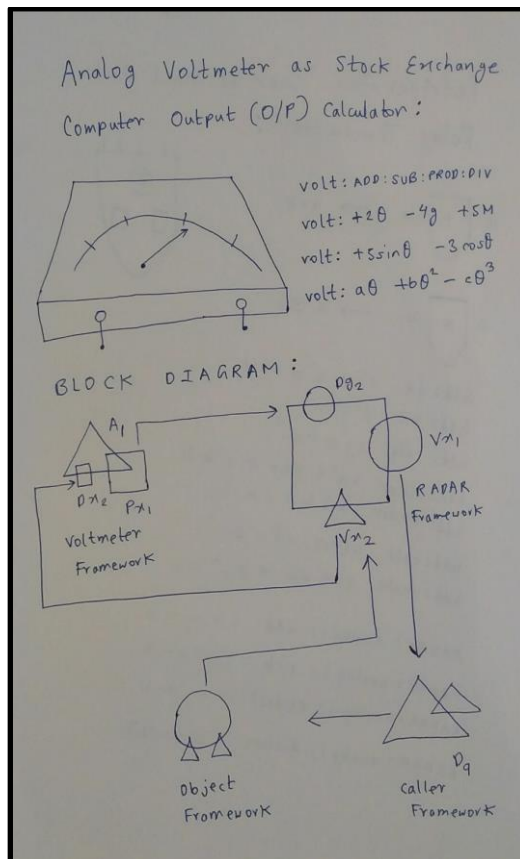 Analog Voltmeter as Stock Exchange
Computer Output (O/P) Calculator:
volt: ADD:SUB:PROD:DIV
volt: +2θ -4g +5M
volt: +5sinθ -3cosθ
volt: aθ +bθ² -cθ³
BLOCK DIAGRAM:
A₁
Dx₂
Px₁
Voltmeter
Framework
Dg₂
Vx₁
RADAR
Framework
Vx₂
Object
Framework
Dq
Caller
Framework